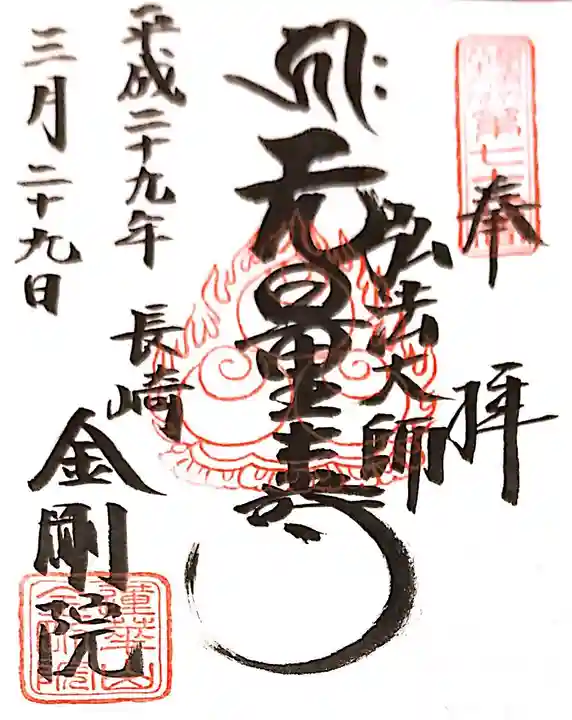 奉拝
弘法大師
无量寿
平成二十九年
三月二十九日
長崎
金剛院